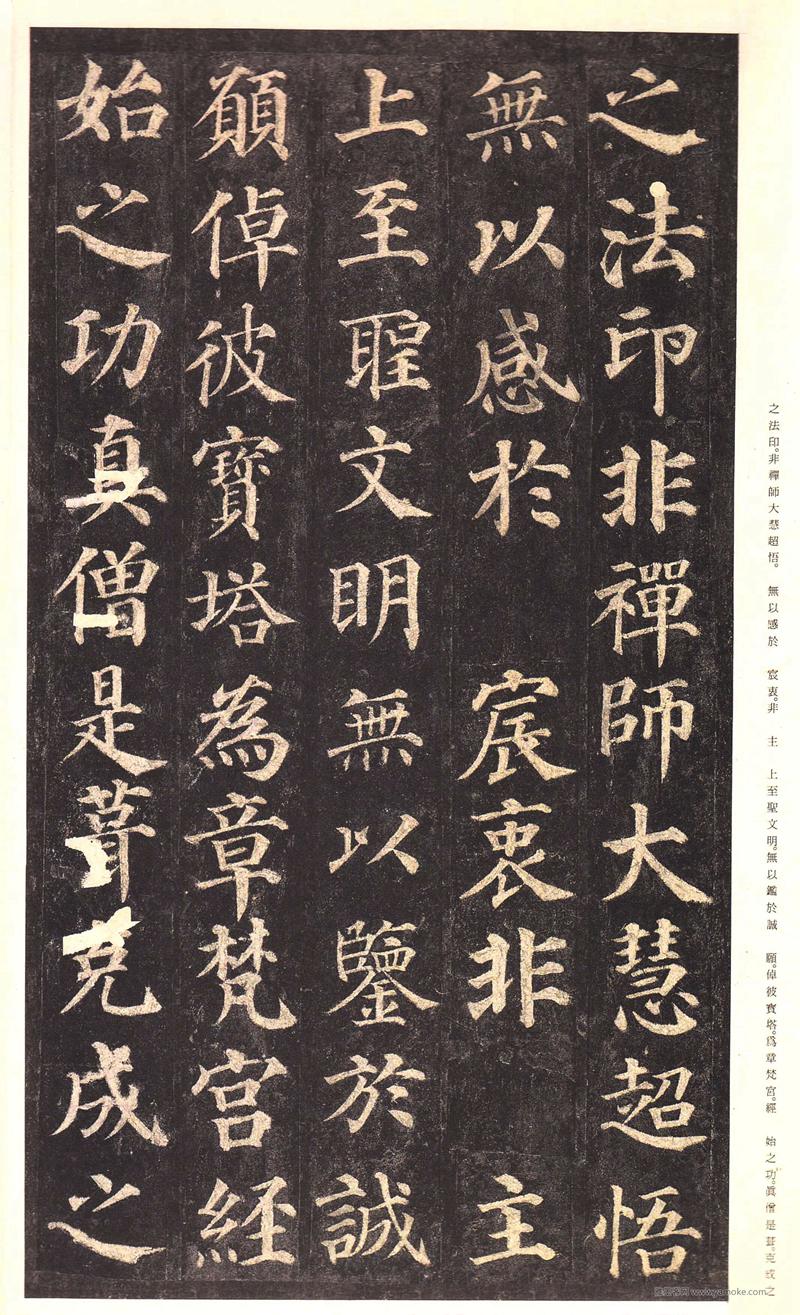 之法印非禪師大慧超悟
無以感於 宸衷非 主
上至聖文明無以鑒於誠
願倬彼寶塔為章梵宮経
始之功真僧是葺克成之
之法印。非禪師大慧超悟。 無以感於 宸衷。非 主 上至聖文明。無以鑑於誠 願。倬彼寶塔。爲章梵宮。經 始之功。眞僧是葺。克成之
www.yamoke.com